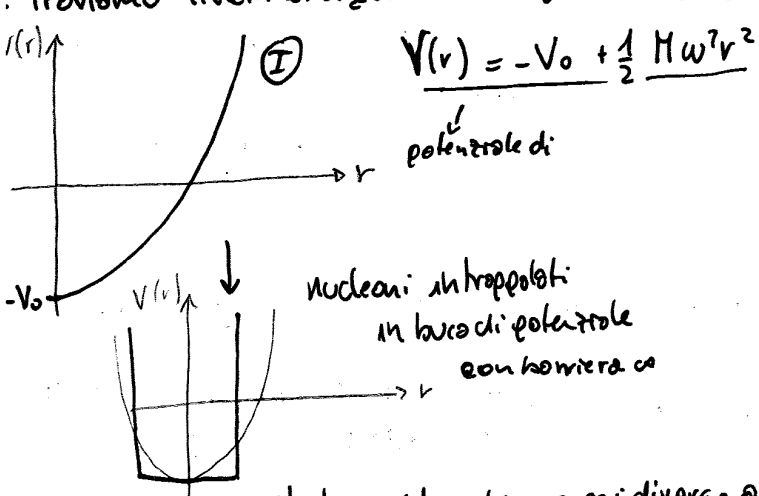 V(r)
I
V(r) = -V₀ + ½ Mω²r²
potenziale di
r
-V₀
V(r)
nucleoni intrappolati
in buca di potenziale
con barriera ∞
r